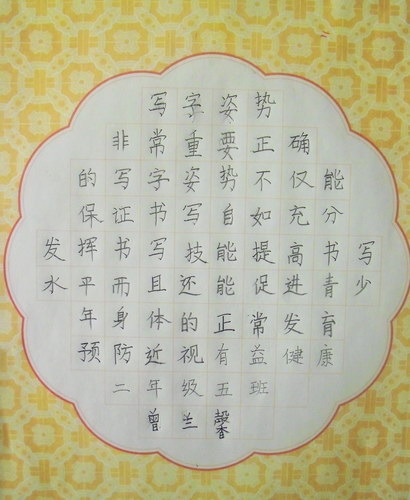 写字姿势
非常重要正确
的写字姿势不仅能
保证书写自如充分
发挥书写技能提高书写
水平而且还能促进青少
年身体的正常发育
预防近视有益健康
二年级五班
曾兰馨